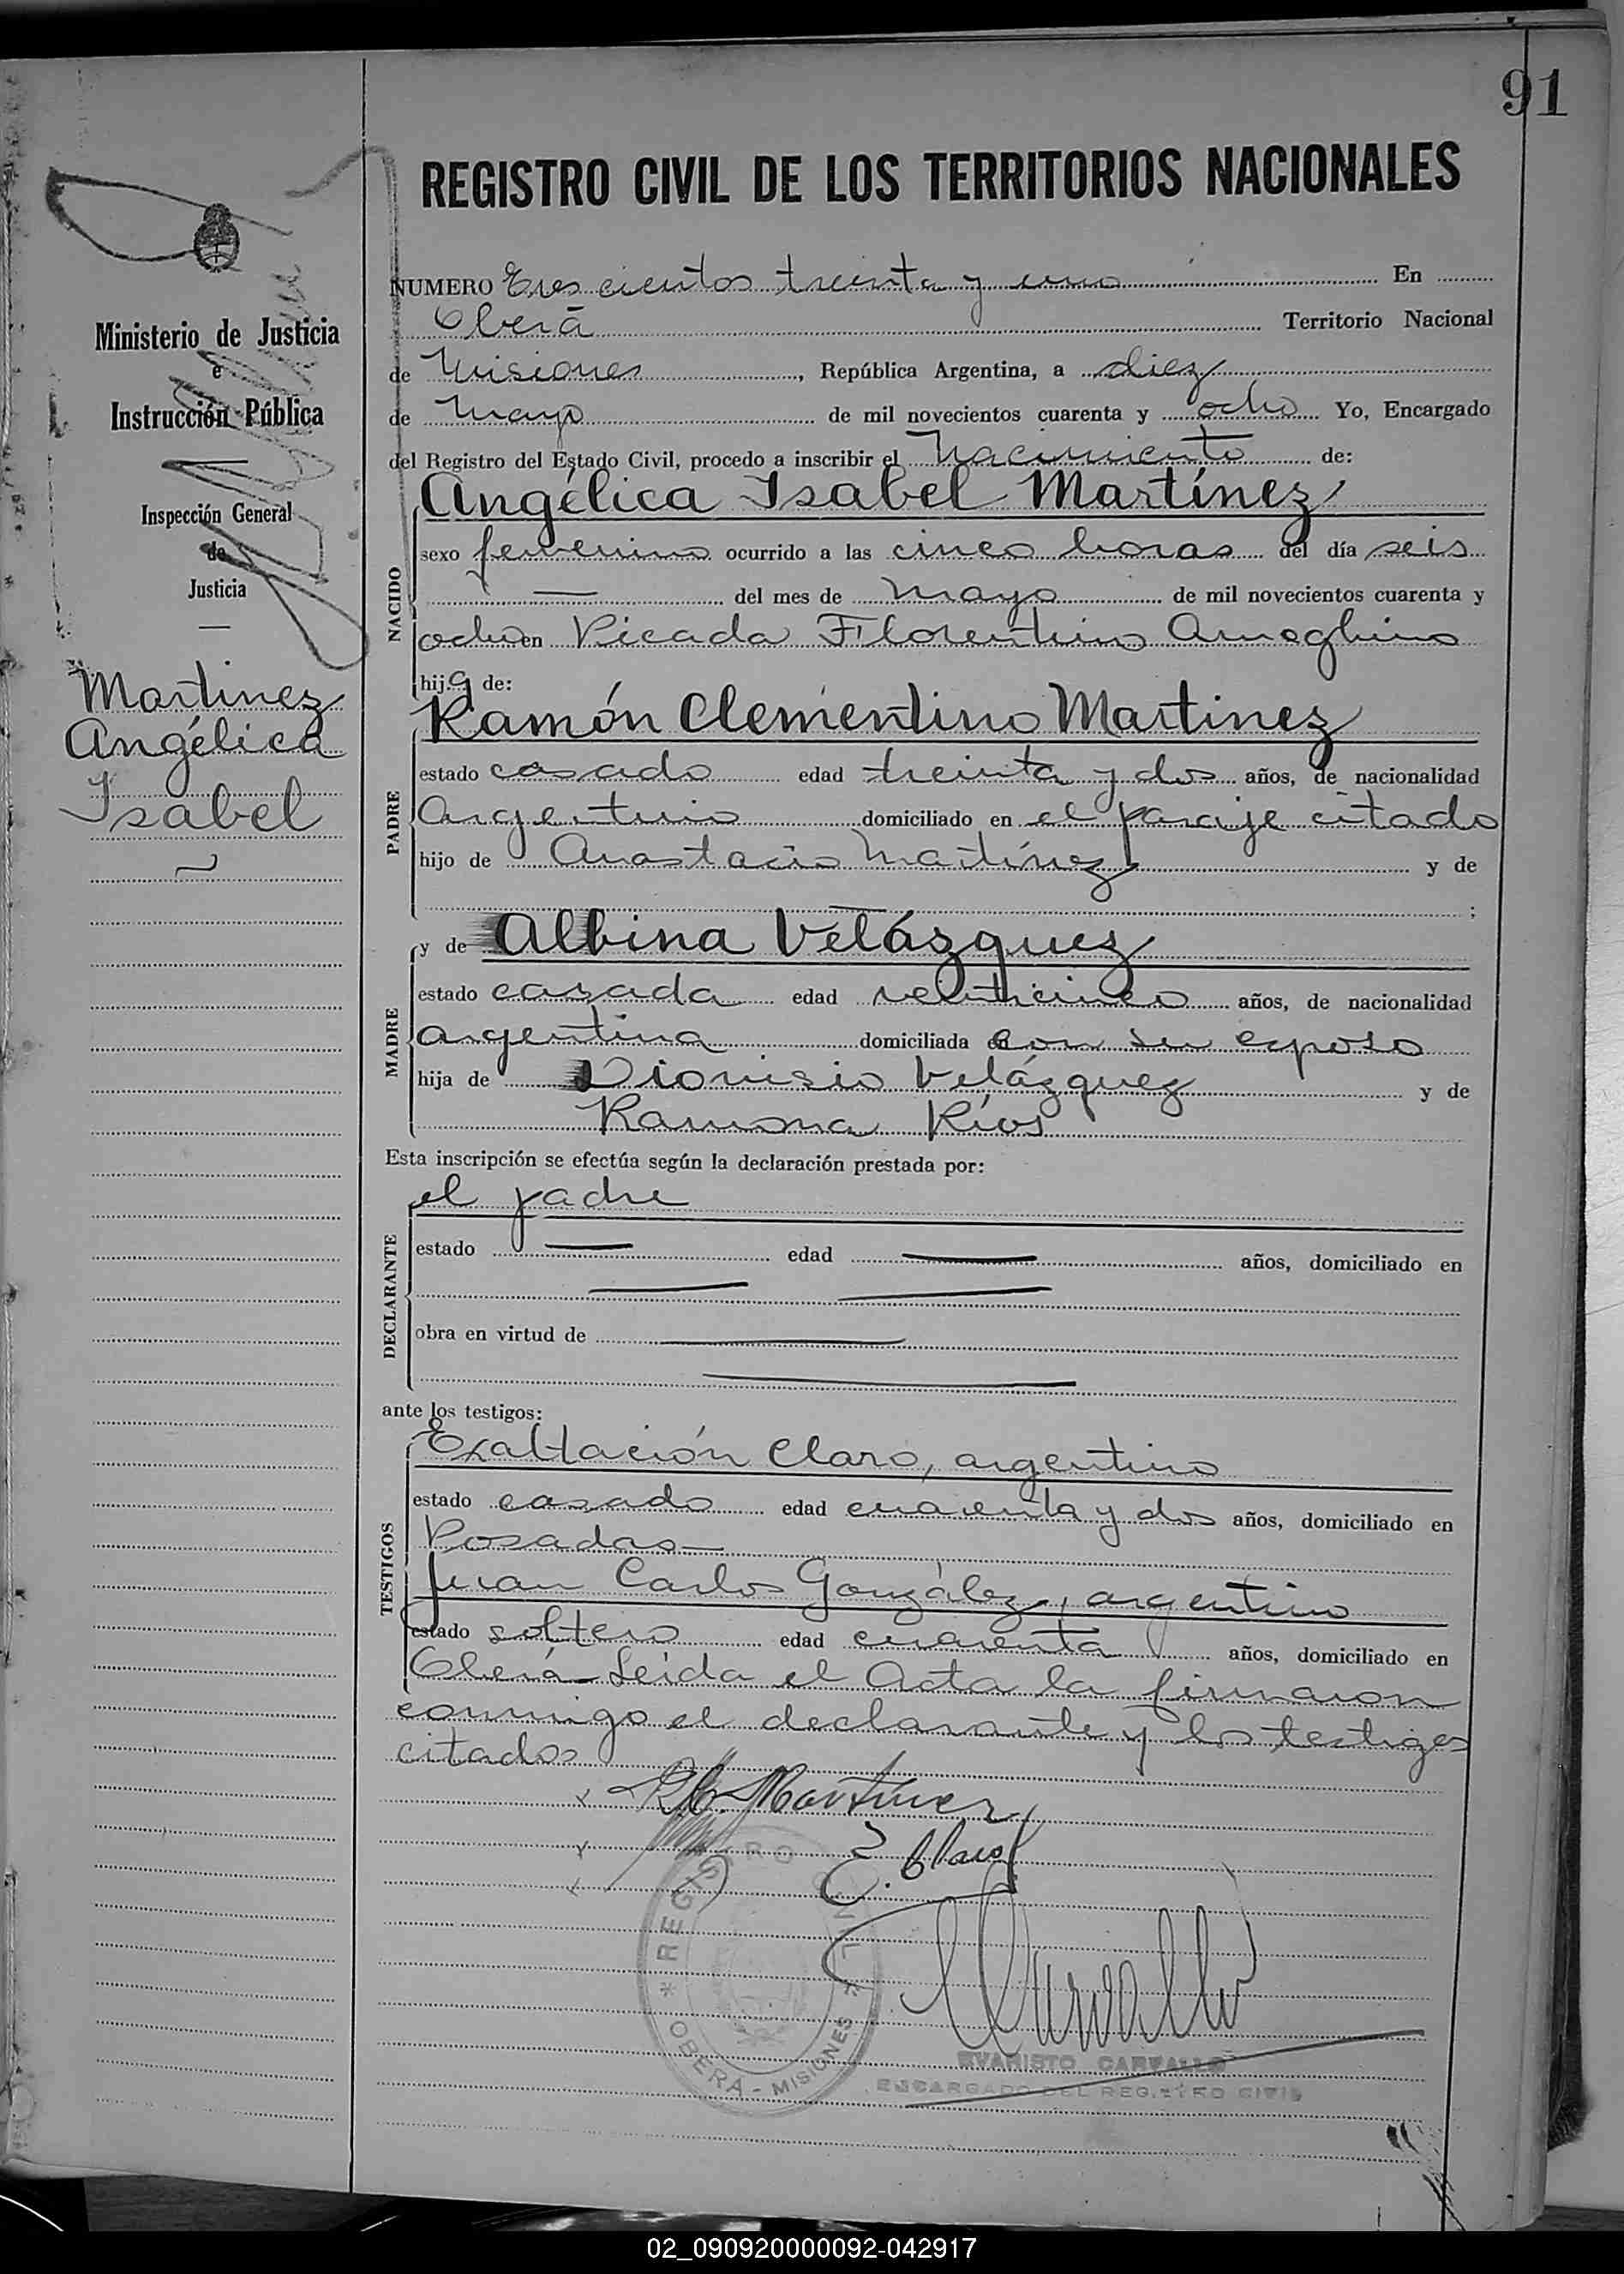 91
REGISTRO CIVIL DE LOS TERRITORIOS NACIONALES
Ministerio de Justicia
e
Instrucción Pública
Inspección General
de
Justicia
Martinez
Angélica
Isabel
NUMERO Tres cientos treinta y uno En
Oberá Territorio Nacional
de Misiones, República Argentina, a diez
de mayo de mil novecientos cuarenta y ocho Yo, Encargado
del Registro del Estado Civil, procedo a inscribir el Nacimiento de:
NACIDO
Angélica Isabel Martínez
sexo femenino ocurrido a las cinco horas del día seis
— del mes de mayo de mil novecientos cuarenta y
ocho en Picada Florentino Ameghino
hija de:
PADRE
Ramón Clementino Martinez
estado casado edad treinta y dos años, de nacionalidad
Argentino domiciliado en el paraje citado
hijo de Anastacio Martínez y de
— ;
MADRE
y de Albina Velázquez
estado casada edad veinticinco años, de nacionalidad
argentina domiciliada con su esposo
hija de Dionisio Velázquez y de
Ramona Ríos
Esta inscripción se efectúa según la declaración prestada por:
DECLARANTE
el padre
estado — edad — años, domiciliado en
— —
obra en virtud de —
—
ante los testigos:
TESTIGOS
Exaltación Claro, argentino
estado casado edad cuarenta y dos años, domiciliado en
Posadas—
Juan Carlos González, argentino
estado soltero edad cuarenta años, domiciliado en
Oberá—Leída el Acta la firmaron
conmigo el declarante y los testigos
citados
R.C. Martínez
E. Claro
REGISTRO CIVIL
* OBERA - MISIONES *
Carvallo
EVARISTO CARVALLO
ENCARGADO DEL REGISTRO CIVIL
02_090920000092-042917